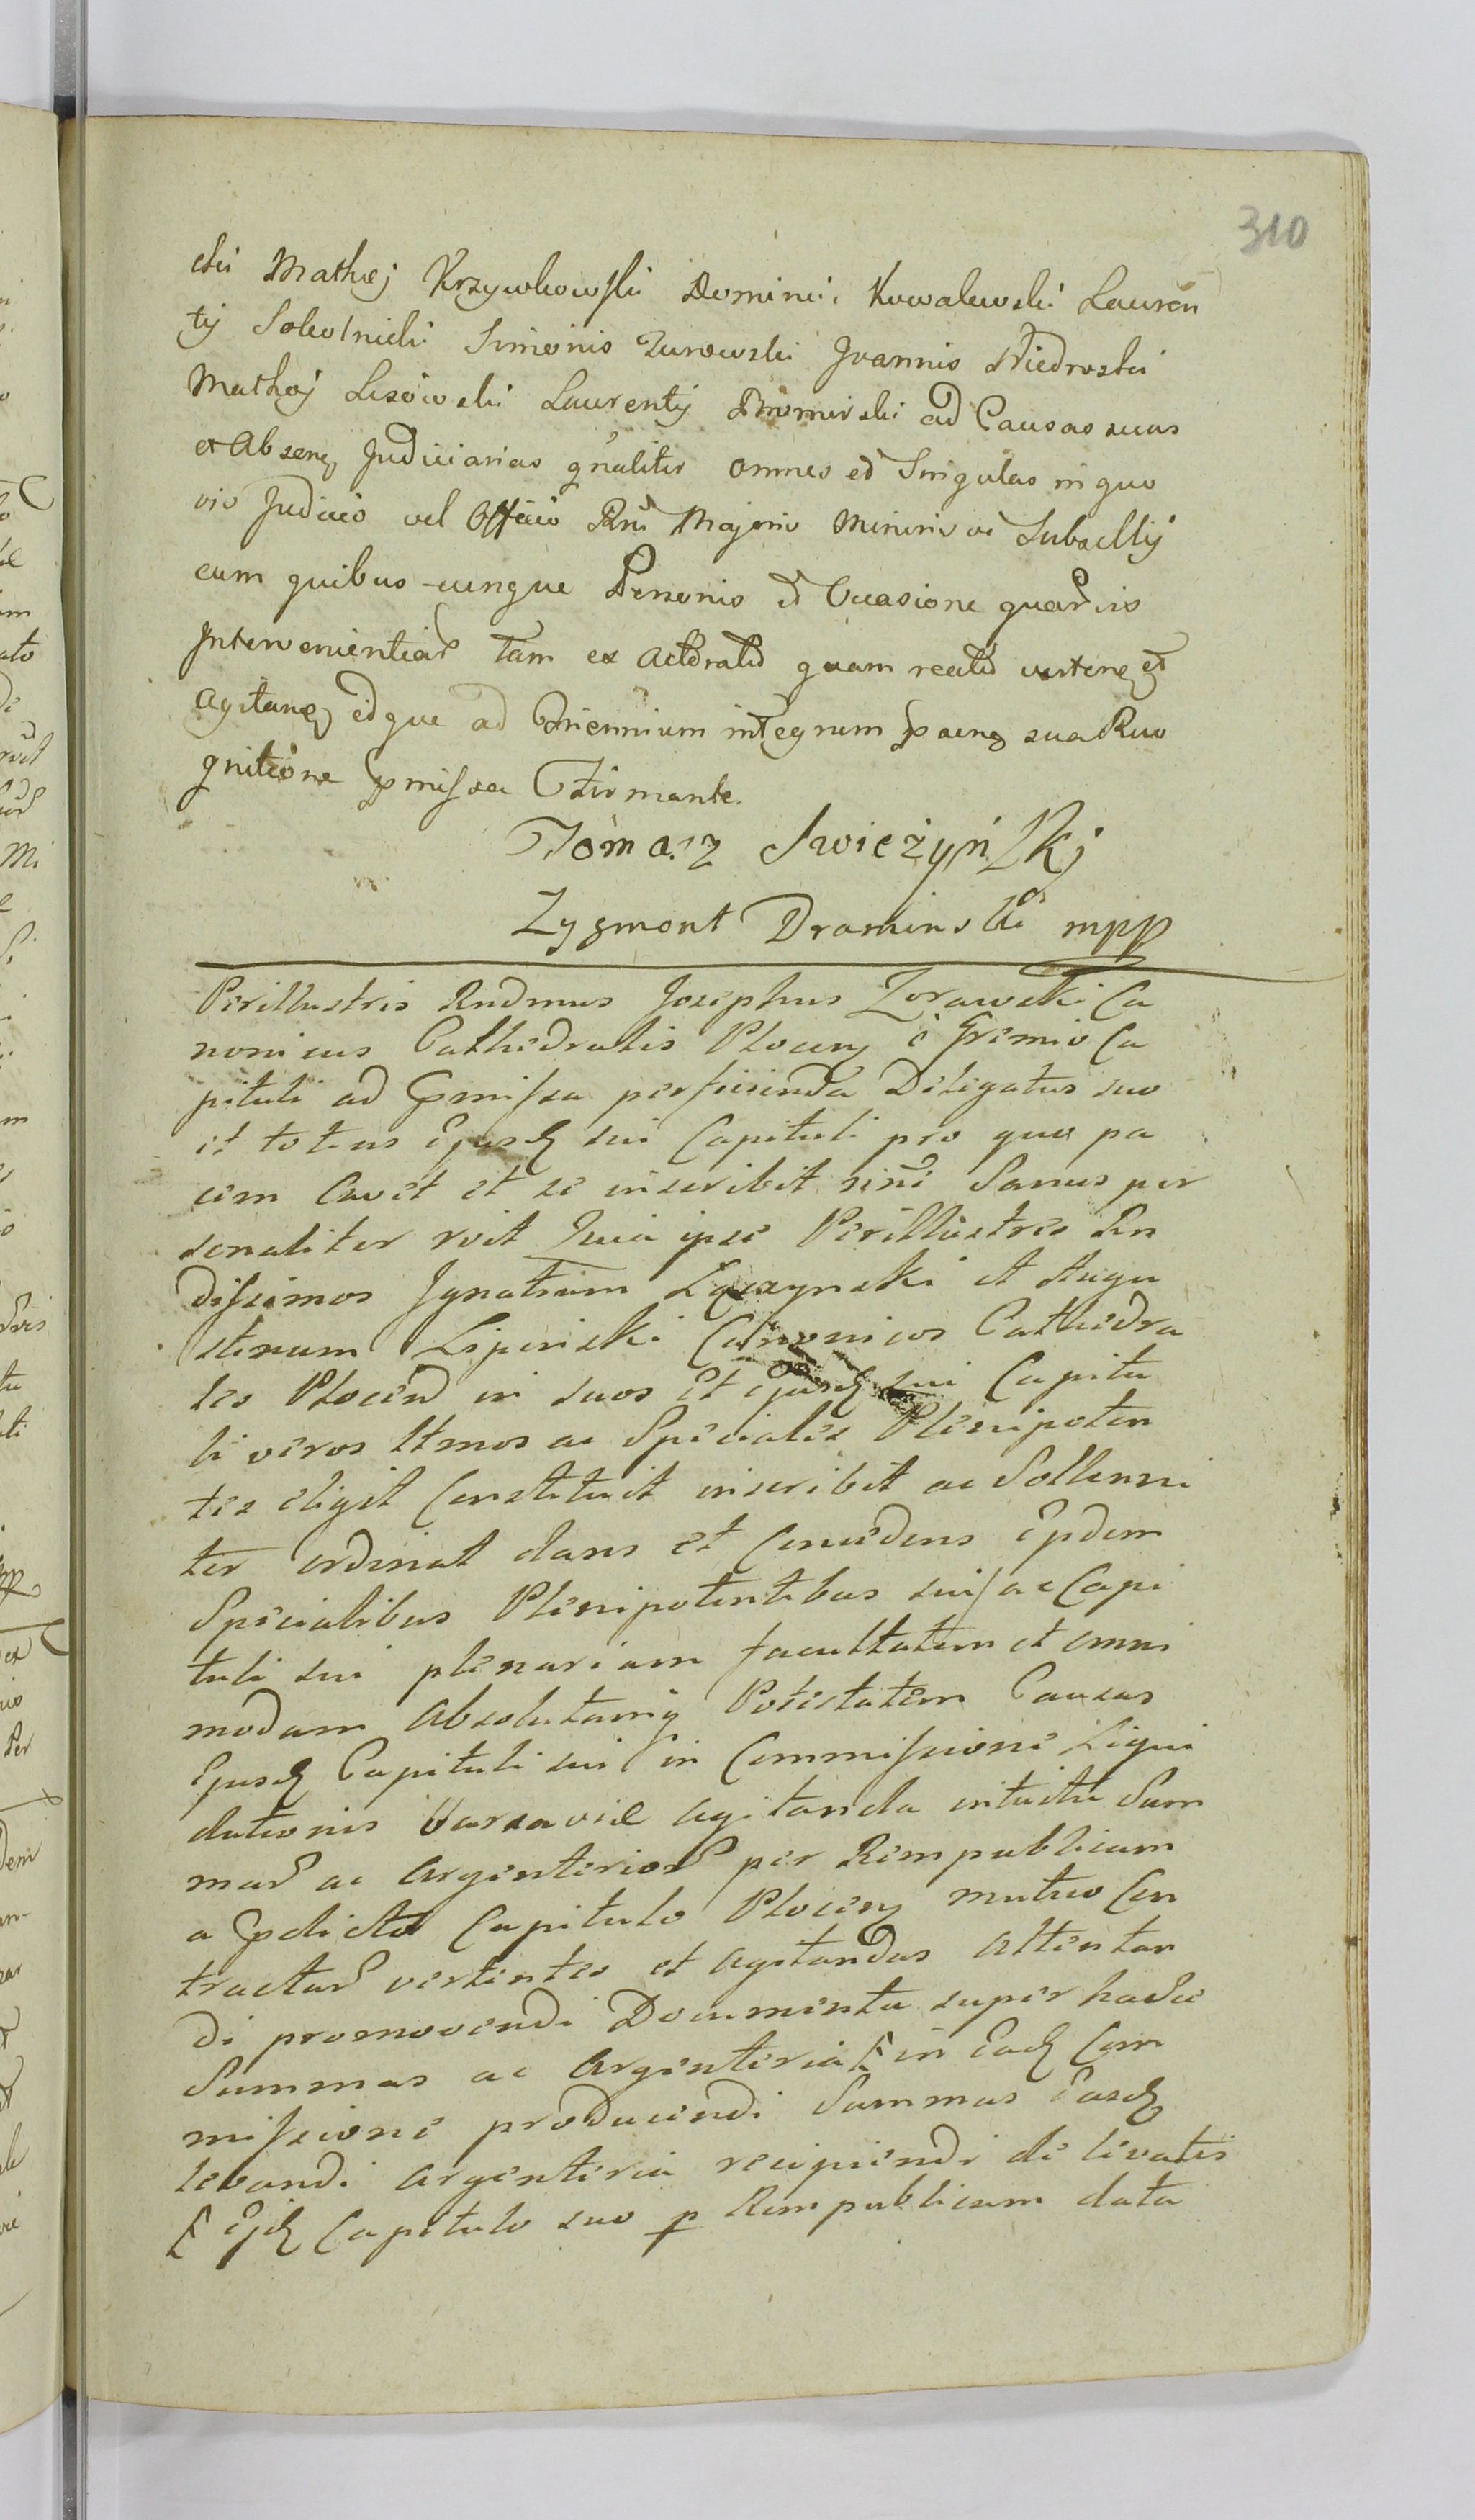 310
cki Mathej Krzywkowski Dominici Kowalewski Lauren
tij Sokolnicki Simonis Zurowski Joannis Niedroski
Mathej Lisowski Laurentij Bromirski ad Causas suas
et Absen Judiciarias gnaliter omnes et Singulas in quo
vis Judicio vel Officio Rni Majoris Minoris ve Subsellij
cum quibus-cunque Personis et Occasione quarvis
Intervenientiar tam ex Actoratu quam reatu verten et
Agitan idque ad Triennium integrum paen sua Reco
gnitione pmissa Firmante.
Tomasz Swieżyńskj
Zygmont Draminski mpp
Perillustris Rndmus Josephus Zorawski Ca
nonicus Cathedralis Plocen è Gremio Ca
pituli ad pmissa perficienda Delegatus suo
et totius Ejusd sui Capituli pro quo pa
cem Cavet et se inscribit nine Sanus per
sonaliter rvit Quia ipse Perillustres Rn
dissimos Ignatium Łączynski et Augu
stinum Lipinski Canonicos Cathedra
les Plocen in suos Et Ejusd sui Capitu
li veros ltmos ac Speciales Plenipoten
tes eligit Constituit inscribit ac Sollenni
ter ordinat dans et Concedens Epdem
Specialibus Plenipotentibus suis ac Capi
tuli sui plenariam facultatem et omni
modam Absolutamq Potestatem Causas
Ejusd Capituli sui in Commissione Liqui
dationis Varsaviæ agitanda intuitu Sum
mar ac Argenterior per Rempublicam
a pdicto Capitulo Plocen mutuo Con
tractar vertentes et agitandas Attentan
di promovendi Documenta super hasce
Summas ac Argenteria in Ead Com
missione producendi Summas Easd
levandi Argenteria recipiendi de levatis
Ejd Capitulo suo p Rempublicam data